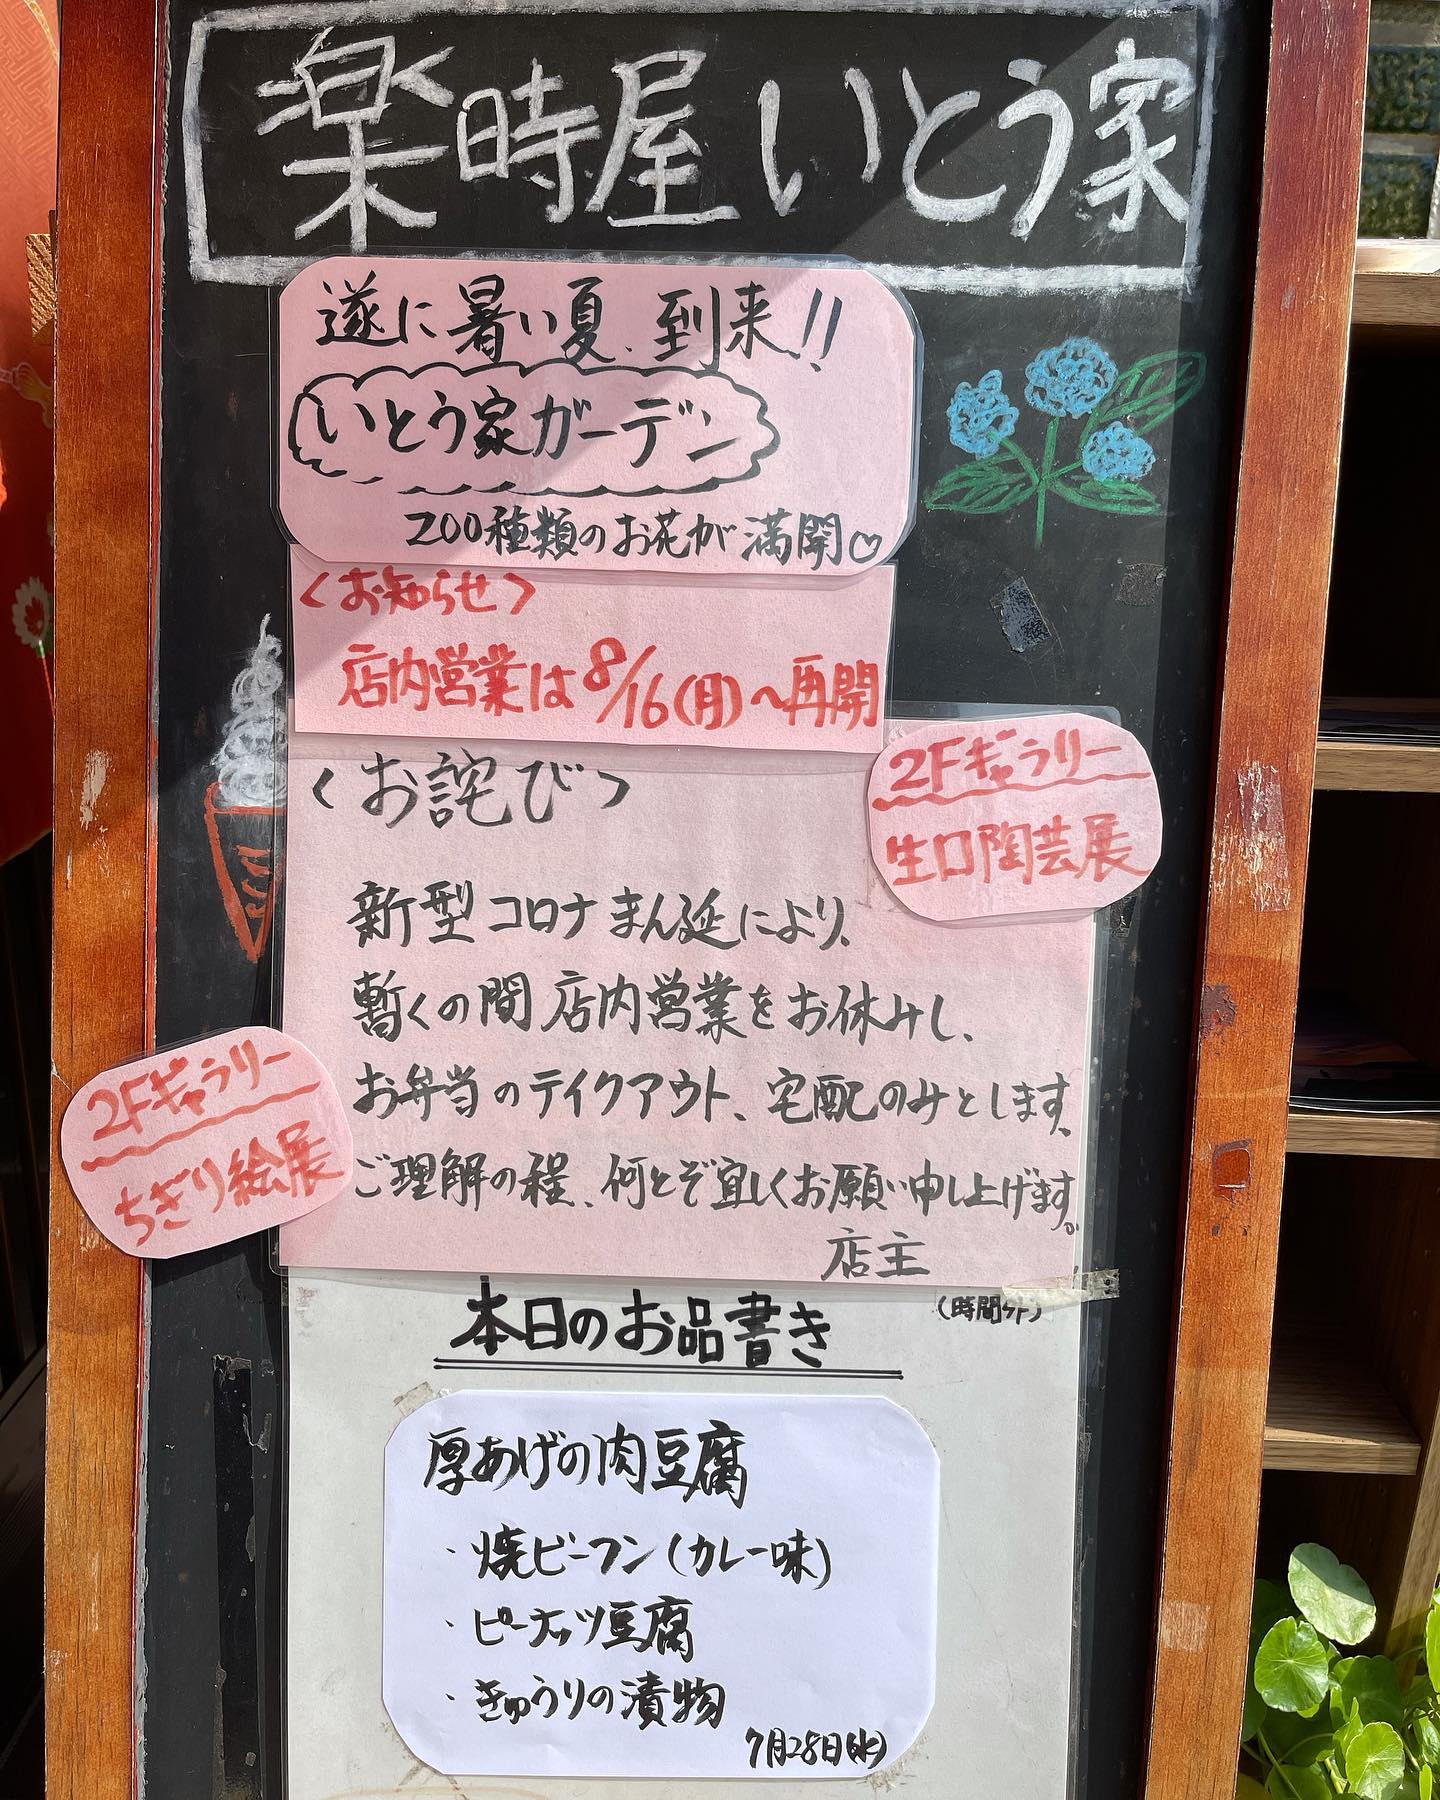 楽時屋いとう家
遂に暑い夏、到来!!
いとう家ガーデン
200種類のお花が満開♡
<お知らせ>
店内営業は8/16(月)〜再開
2Fギャラリー
生口陶芸展
<お詫び>
新型コロナまん延により、
暫くの間店内営業をお休みし、
お弁当のテイクアウト、宅配のみとします。
ご理解の程、何とぞ宜しくお願い申し上げます。
店主
2Fギャラリー
ちぎり絵展
本日のお品書き
(時間外)
厚あげの肉豆腐
・焼ビーフン(カレー味)
・ピーナッツ豆腐
・きゅうりの漬物
7月28日(水)